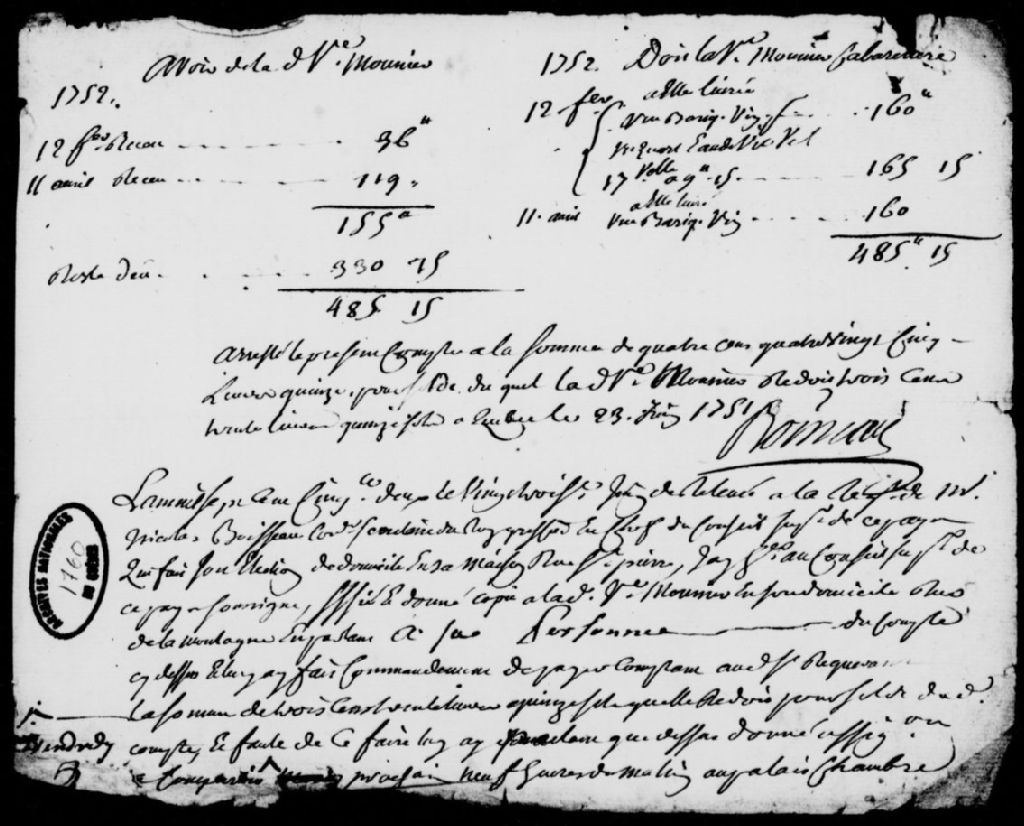 Avoir de la d Ve. Mounier
1752.
12 fer Recu 36"
11 avril Recu 119"
155"
Reste deu 330 15
485 15
1752. Doit la Ve. Mounier Cabaretiere
12 fer a Elle livré
une Bariq. Vin 160"
Vn quart Eau de Vie
17 Velte a 9" 15 165 15
11. avril a Elle livré
une Bariq. Vin 160
485" 15
Arresté le present Compte a la somme de quatre cens quatre Vingt Cinq
Livres quinze sols, du quel la d Ve. Mounier Redoit trois Cens
trente livres quinze sols a Quebec le 23. Juin 1751
L'an mil sept Cent Cinqte. deux le Vingt troise. Juin de Relevée a la Reqte. de Mr.
Nicolas Boisseau Conr. Secretaire du Roy greffier En Chef du Conseil supr. de ce pays
Qui fait son Election de domicile En sa Maison Rue St. pierre, Jay hr. au Conseil supr. de
ce pays soussigné, signifié Et donné copie a la d. Ve. Mounier En son domicile Rue
de la montagne En parlant A sa Personne du Compte
cy dessus Et luy ay fait Commandement de payer Comptant aud. Sr. Requerant
La somme de trois Cens trente livres quinze sols quelle Redoit pour solde du d.
compte, Et faute de Ce faire luy ay parlant que dessus donné assigon.
Vendredy
a Comparoir prochain neuf heures du matin au palais Chambre
ARCHIVES NATIONALES
DU QUÉBEC
1760